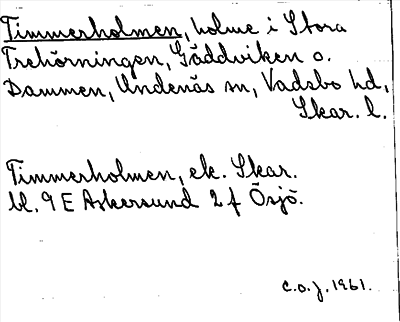 Timmerholmen, holme i Stora
Trehörningen, Gäddviken o.
Dammen, Undenäs sn, Vadsbo hd,
Skar. l.
Timmerholmen, ek. Skar.
bl. 9 E Askersund 2 f Ösjö.
C.O.J. 1961.